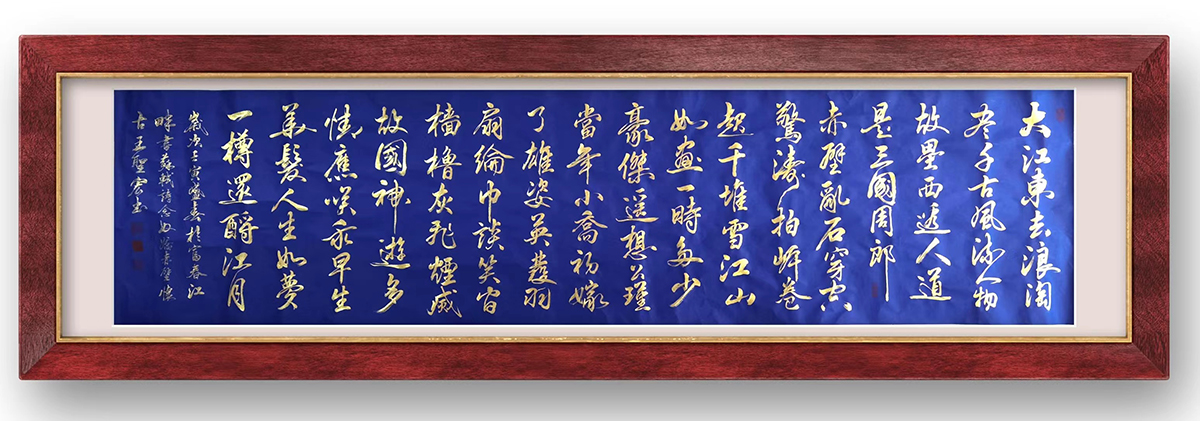 大江東去浪淘
尽千古風流人物
故壘西邊人道
是三國周郎
赤壁亂石穿空
驚濤拍岸卷
起千堆雪江山
如畫一時多少
豪傑遥想公瑾
當年小喬初嫁
了雄姿英發羽
扇綸巾談笑間
檣櫓灰飛煙滅
故國神遊多
情應笑我早生
華髮人生如夢
一樽還酹江月
歲次壬寅盛春於富春江
畔書蘇軾詩念奴嬌赤壁懷
古王聖